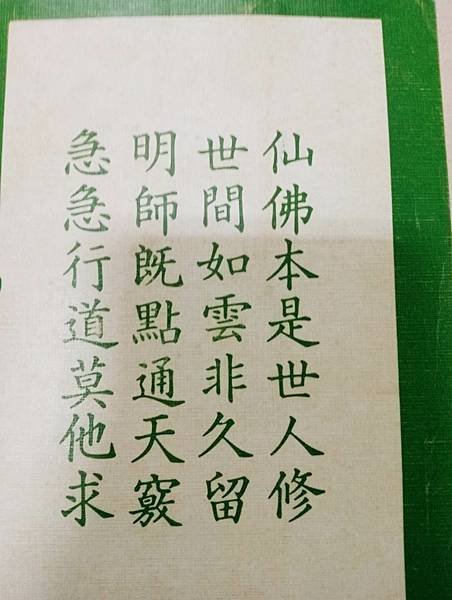 仙佛本是世人修
世間如雲非久留
明師既點通天竅
急急行道莫他求